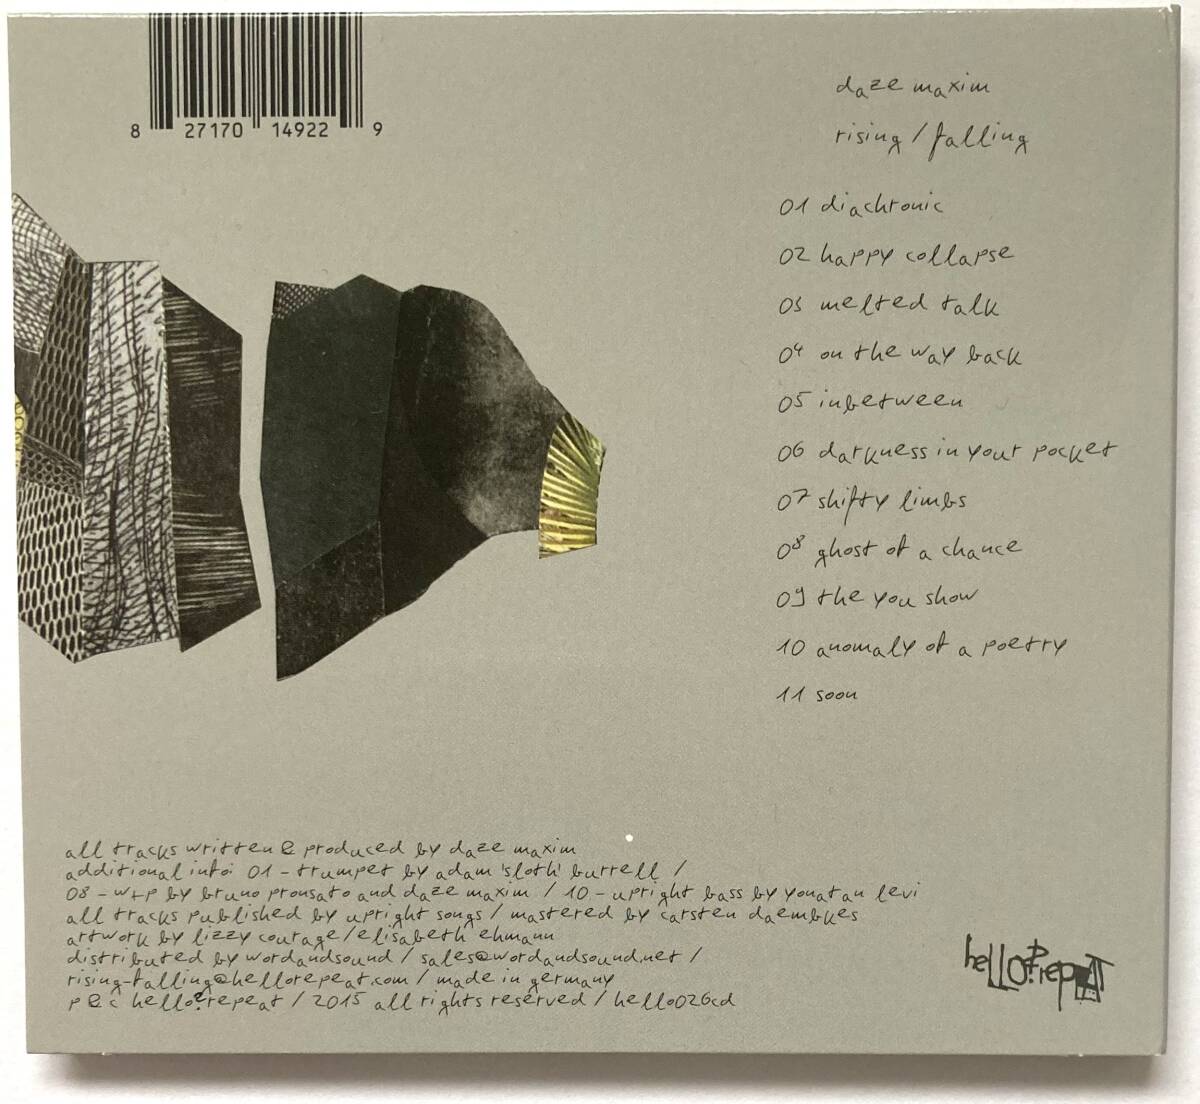 8 27170 14922 9
daze maxim
rising / falling
01 diachronic
02 happy collapse
03 melted talk
04 on the way back
05 inbetween
06 darkness in your pocket
07 shifty limbs
08 ghost of a chance
09 the you show
10 anomaly of a poetry
11 soon
all tracks written & produced by daze maxim
additional info: 01 - trumpet by adam 'sloth' burrell /
08 - w+p by bruno pronsato and daze maxim / 10 - upright bass by yonatan levi
all tracks published by upright songs / mastered by carsten daembkes
artwork by lizzy courage/elisabeth ehmann
distributed by wordandsound / sales@wordandsound.net /
rising-falling@hellorepeat.com / made in germany
p & c hello?repeat / 2015 all rights reserved / hello026cd
hello?repeat